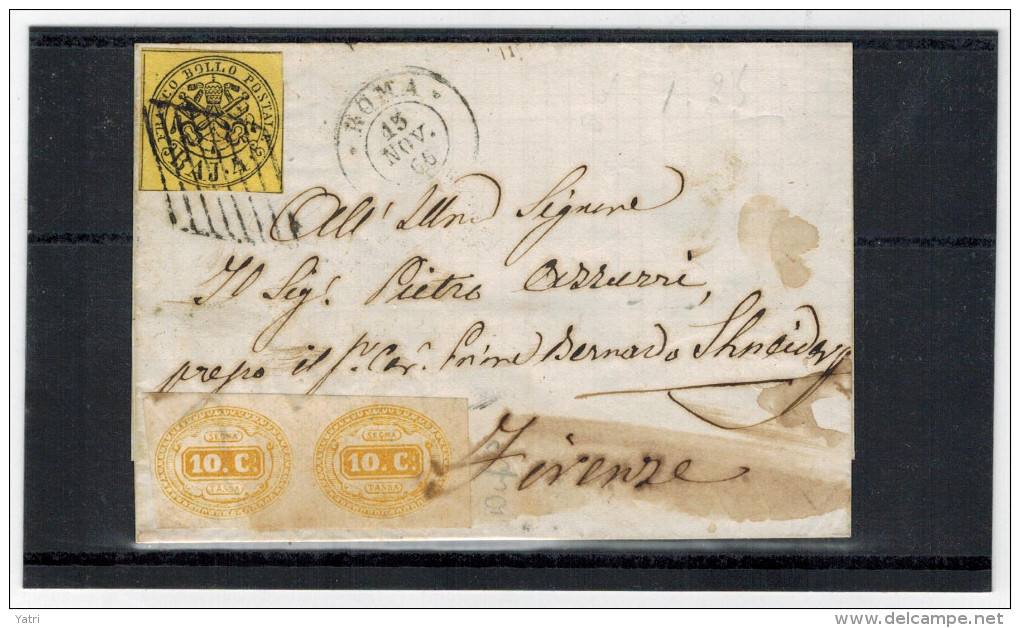 FRANCO BOLLO POSTALE
BAJ. 4
ROMA
15
NOV.
66
1.25
All' Illmo Signore
Il Sig.r Pietro Azzurri,
presso il
Bernardo Shneider
Firenze
SEGNA
10. C.
TASSA
SEGNA
10. C.
TASSA
Yatri
delcampe.net